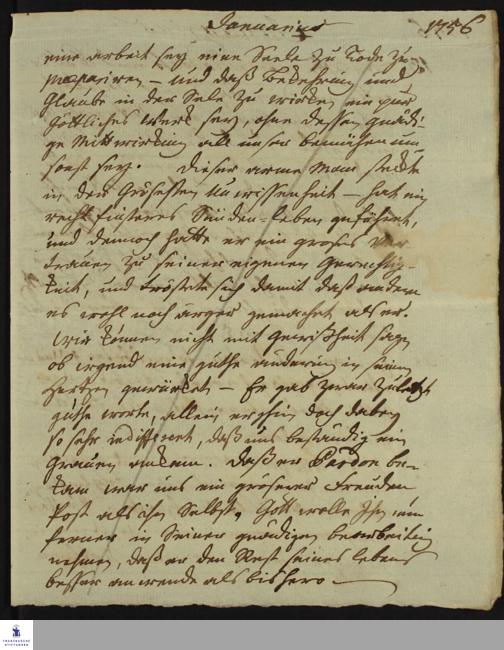 Januarius 1756
eine arbeit sey eine Seele zu Tode zu
– und daß Bekehrung und
Glaube in der Sele zu wirken ein pur
Göttliches Werk sey, ohne dessen gnädi-
ge Mitwirkung all unser bemühen um
sonst sey. Dieser arme Man steckte
in der Grösesten Unwissenheit – hat ein
recht finsteres Sünden-leben geführet,
und dennoch hatte er ein groses Ver
trauen zu seiner eigenen Gerechtig-
keit, und tröstete sich damit daß andere
es wohl noch ärger gemachet als er.
Wir können nicht mit gewißheit sagen
ob irgend eine guthe änderung in seinem
Hertzen gewürket – Er gab zwar zuletzt
guthe worte, allein er schin doch dabey
so sehr indifferent, daß uns beständig ein
Grauen ankam. Daß er Pardon be-
kam war uns ein groserer Freuden
Post als ihm Selbst. Gott wolle Ihn nun
ferner in Seiner gnädigen bearbeitung
nehmen, daß er den Rest seines lebens
besser anwende als bishero –
FRANCKESCHE
STIFTUNGEN